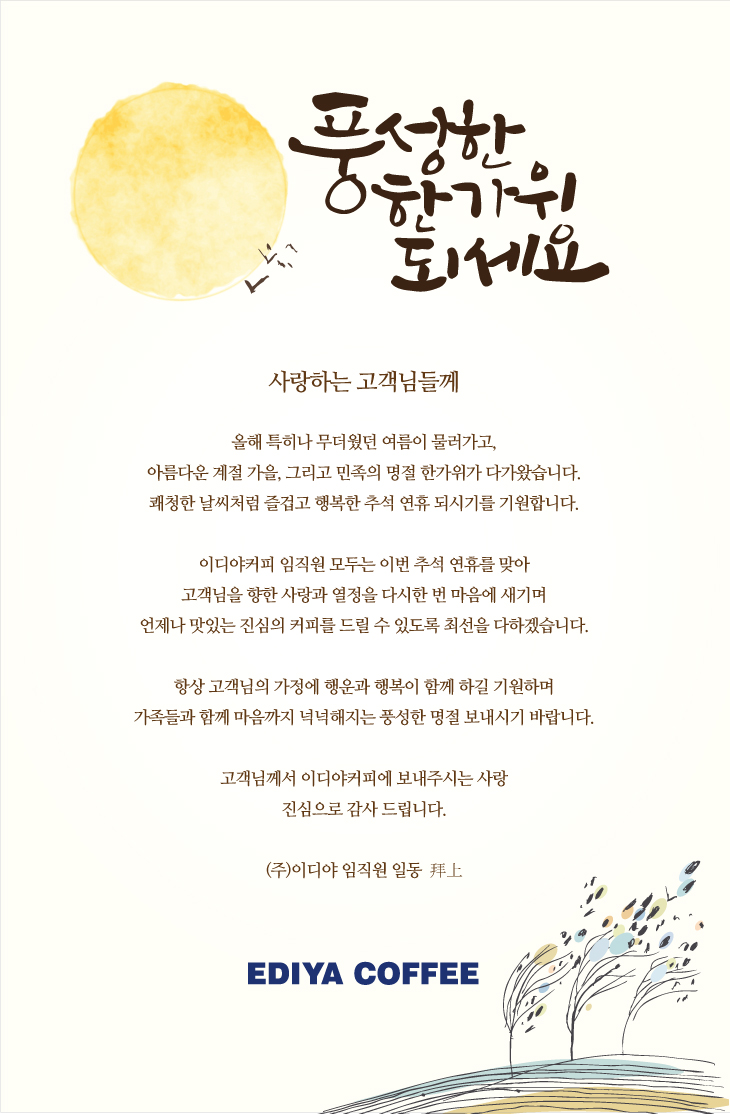 풍성한
한가위
되세요
사랑하는 고객님들께
올해 특히나 무더웠던 여름이 물러가고,
아름다운 계절 가을, 그리고 민족의 명절 한가위가 다가왔습니다.
쾌청한 날씨처럼 즐겁고 행복한 추석 연휴 되시기를 기원합니다.
이디야커피 임직원 모두는 이번 추석 연휴를 맞아
고객님을 향한 사랑과 열정을 다시한 번 마음에 새기며
언제나 맛있는 진심의 커피를 드릴 수 있도록 최선을 다하겠습니다.
항상 고객님의 가정에 행운과 행복이 함께 하길 기원하며
가족들과 함께 마음까지 넉넉해지는 풍성한 명절 보내시기 바랍니다.
고객님께서 이디야커피에 보내주시는 사랑
진심으로 감사 드립니다.
(주)이디야 임직원 일동 拜上
EDIYA COFFEE